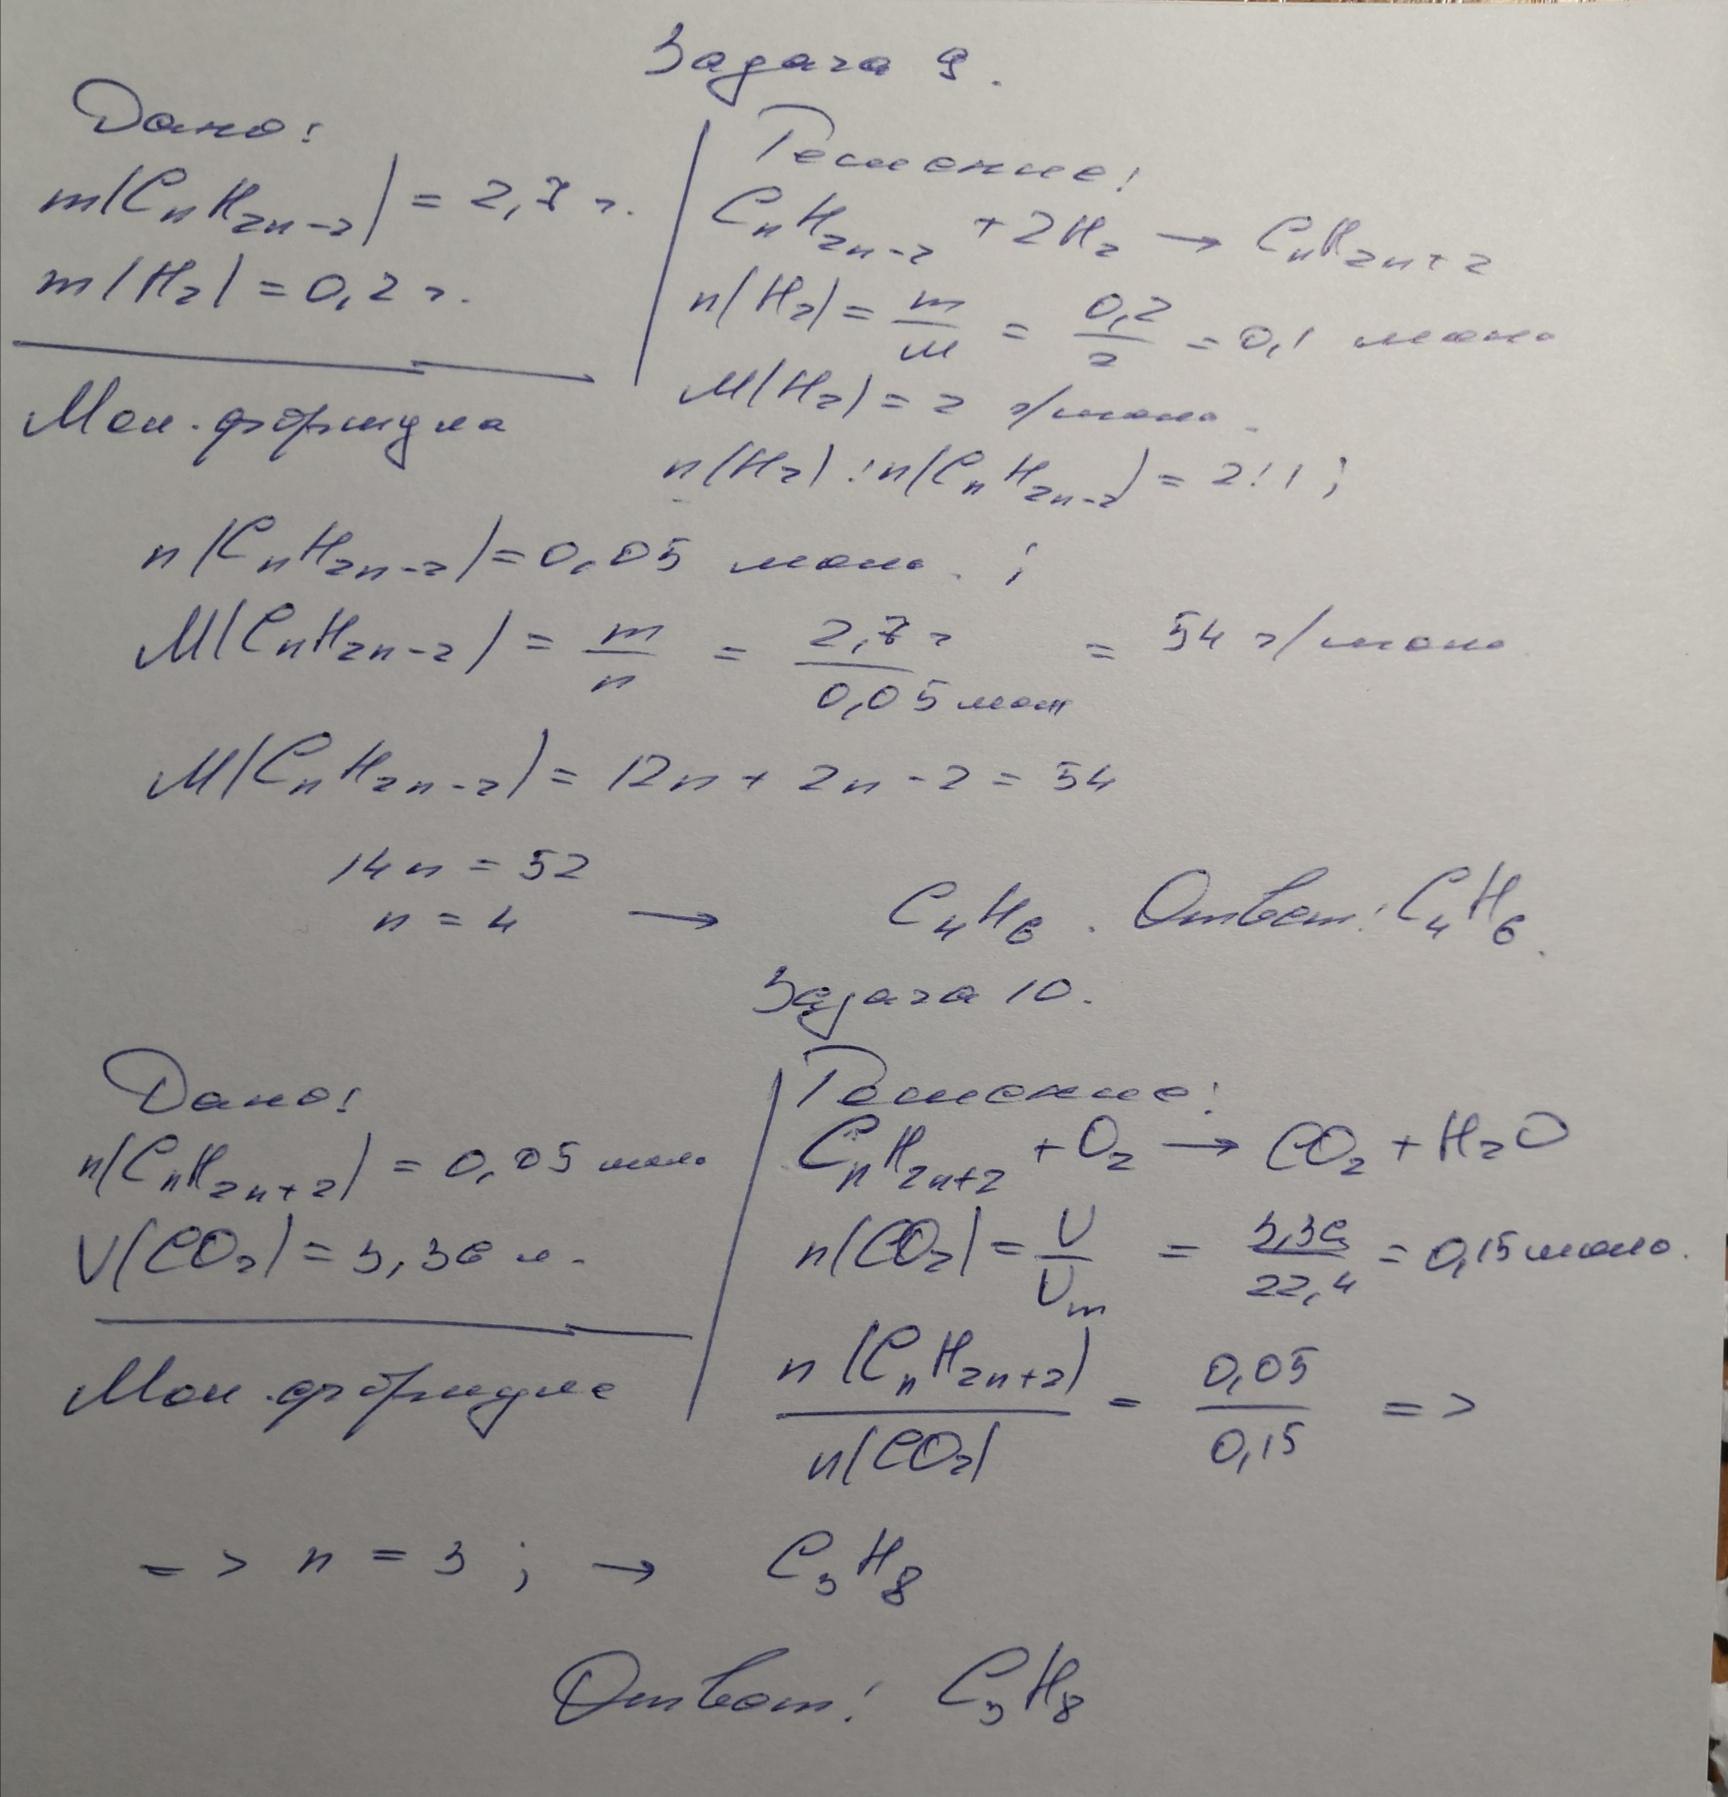 Задача 9.
Дано:
m(CnH2n-2) = 2,7 г.
m(H2) = 0,2 г.
Мол. формула
Решение:
CnH2n-2 + 2H2 → CnH2n+2
n(H2) = m/M = 0,2/2 = 0,1 моль
M(H2) = 2 г/моль.
n(H2) : n(CnH2n-2) = 2:1;
n(CnH2n-2) = 0,05 моль. ;
M(CnH2n-2) = m/n = 2,7 г/0,05 моль = 54 г/моль
M(CnH2n-2) = 12n + 2n - 2 = 54
14n = 52
n = 4 → C4H6. Ответ: C4H6.
Задача 10.
Дано:
n(CnH2n+2) = 0,05 моль
V(CO2) = 3,36 л.
Мол. формула
Решение:
CnH2n+2 + O2 → CO2 + H2O
n(CO2) = V/Vm = 3,36/22,4 = 0,15 моль.
n(CnH2n+2)/n(CO2) = 0,05/0,15 =>
=> n = 3 ; → C3H8
Ответ: C3H8